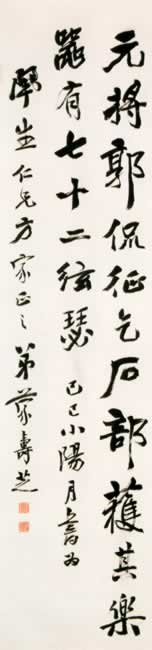 元將郭侃征乞石部獲其樂
器有七十二絃瑟 己巳小陽月書為
生仁兄方家正之 弟蒙壽芝